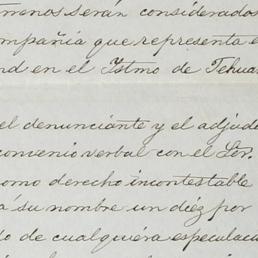 rrenos serán considerados
ompañia que representa e
nd en el Istmo de Tehua
el denunciante y el adjude
convenio verbal con el Sor.
como derecho incontestable
á su nombre un diéz por
o de cualquéra especulac